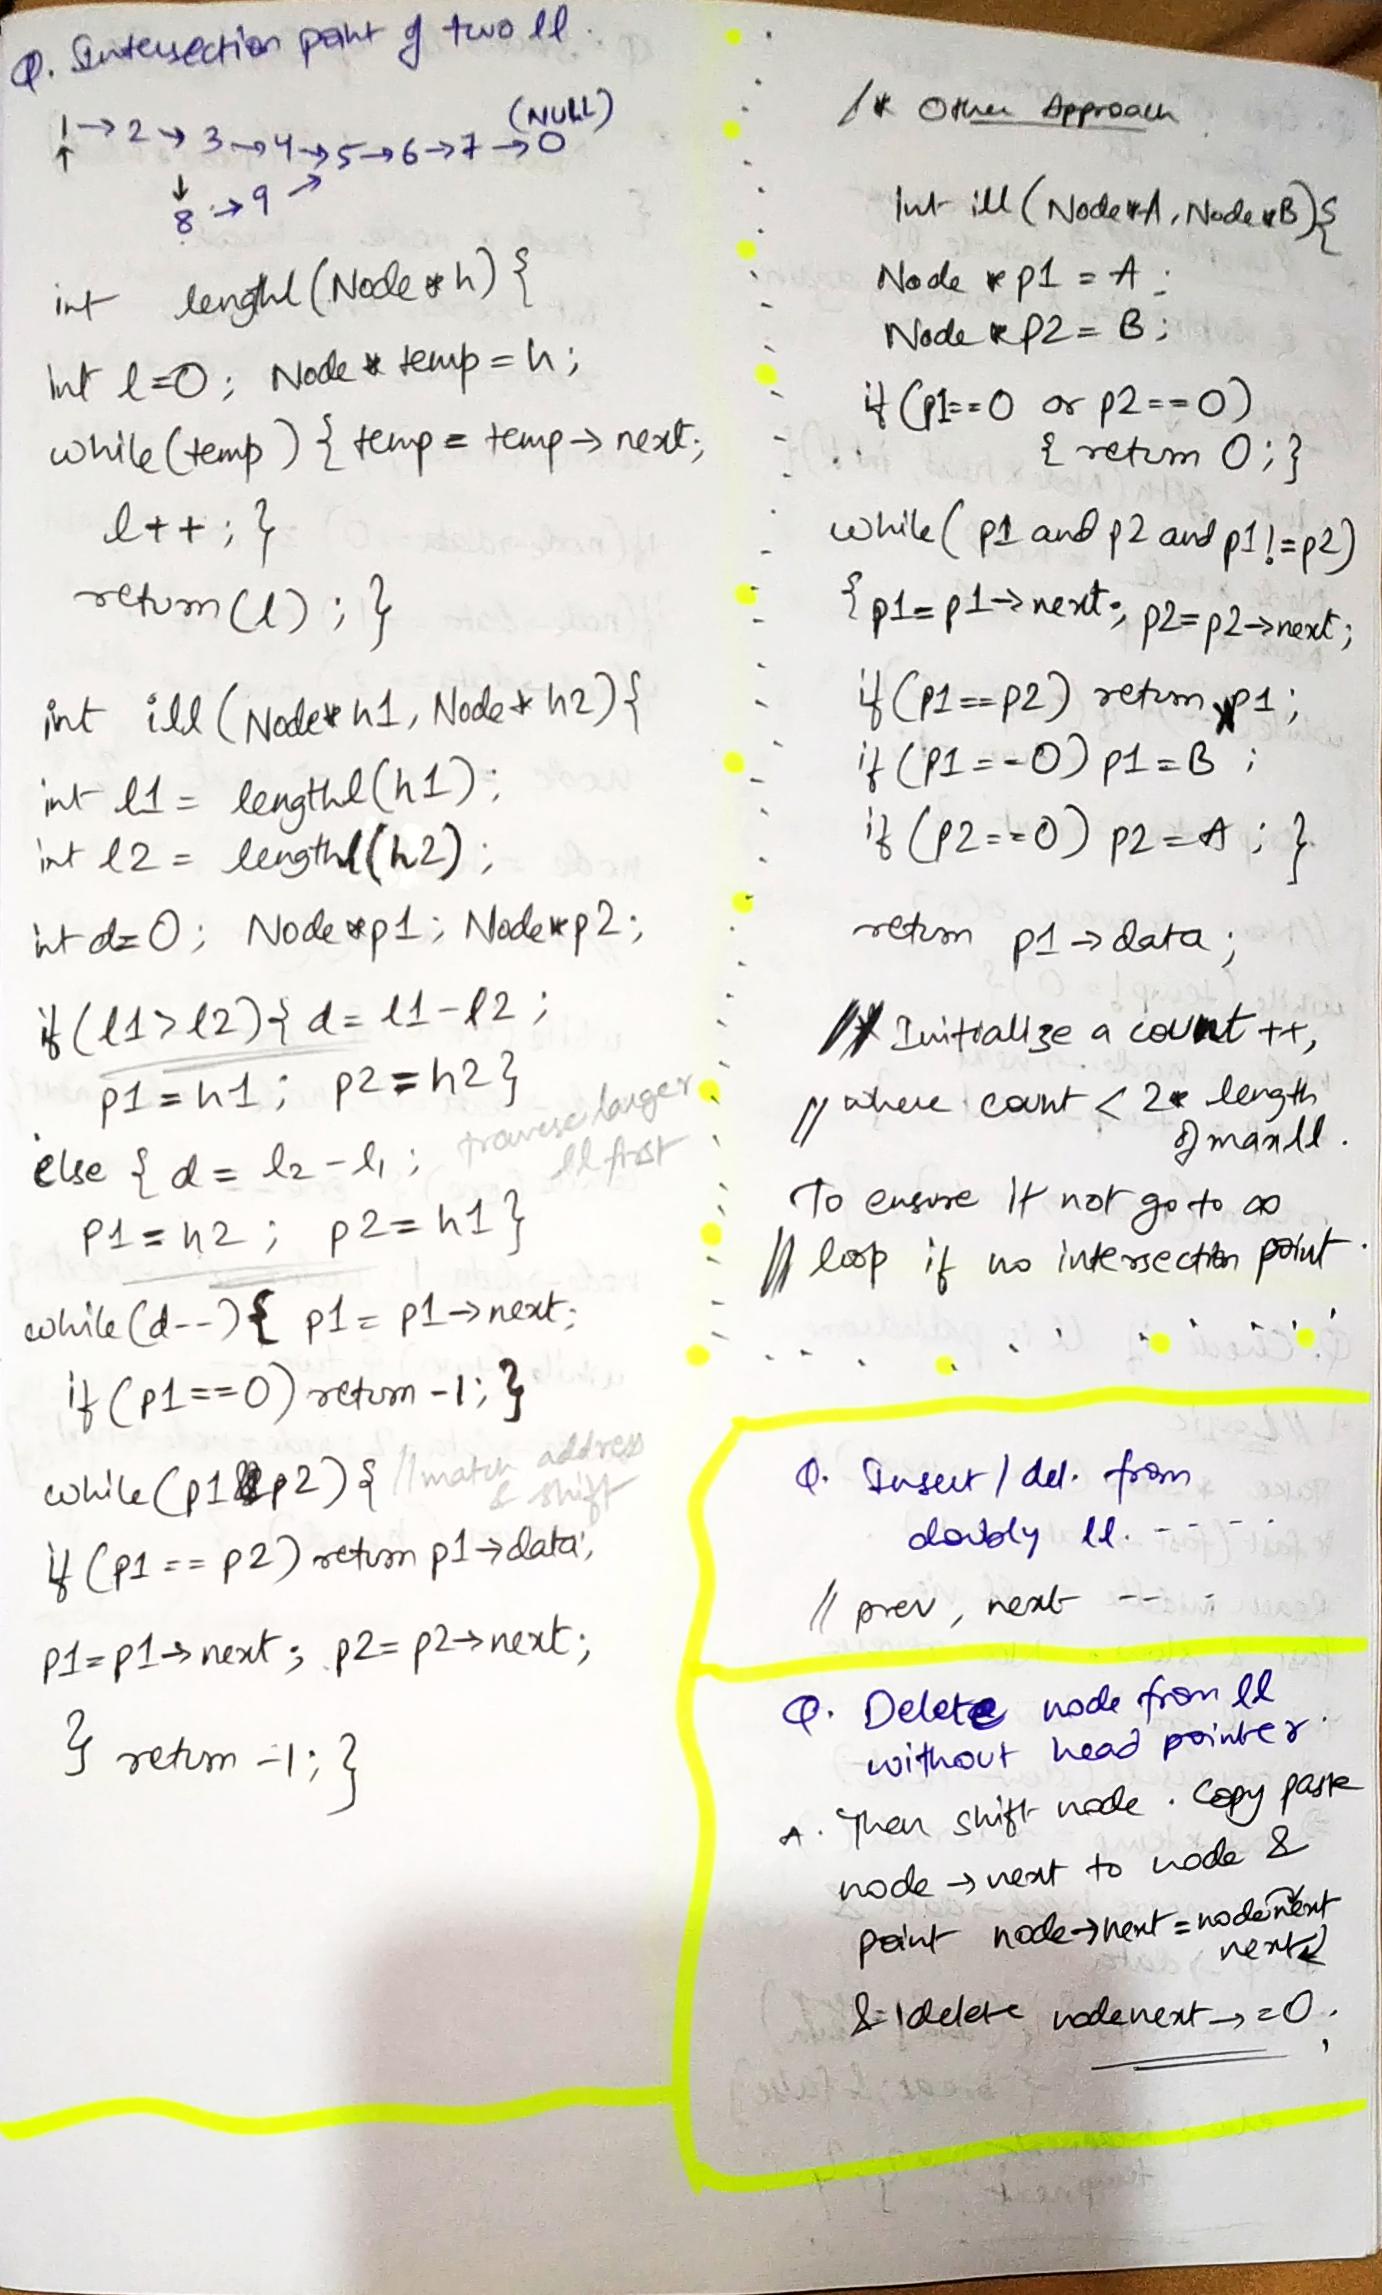 Q. Intersection point of two ll.
1→2→3→4→5→6→7→0 (NULL)
8→9→
int lengthl(Node*h){
int l=0; Node*temp=h;
while(temp){temp=temp→next;
l++;}
return(l);}
int ill(Node*h1, Node*h2){
int l1 = lengthl(h1);
int l2 = lengthl(h2);
int d=0; Node*p1; Node*p2;
if(l1>l2){d=l1-l2;
p1=h1; p2=h2}
else {d=l2-l1; traverse larger
ll first
p1=h2; p2=h1}
while(d--){ p1=p1→next;
if(p1==0) return -1;}
while(p1&&p2){ //match address
& shift
if(p1==p2) return p1→data;
p1=p1→next; p2=p2→next;
} return -1;}
/* Other Approach
Int ill(Node*A, Node*B){
Node *p1=A;
Node *p2=B;
if(p1==0 or p2==0)
{return 0;}
while(p1 and p2 and p1!=p2)
{p1=p1→next; p2=p2→next;
if(p1==p2) return p1;
if(p1==0) p1=B;
if(p2==0) p2=A;}
return p1→data;
// Initialize a count++,
// where count < 2* length
of max ll.
To ensure it not go to ∞
// loop if no intersection point.
Q. Insert / del. from
doubly ll. - - - -
// prev, next - - -
Q. Delete node from ll
without head pointer.
A. Then shift node. Copy paste
node→next to node &
point node→next = nodenext
next
& delete nodenext→=0;